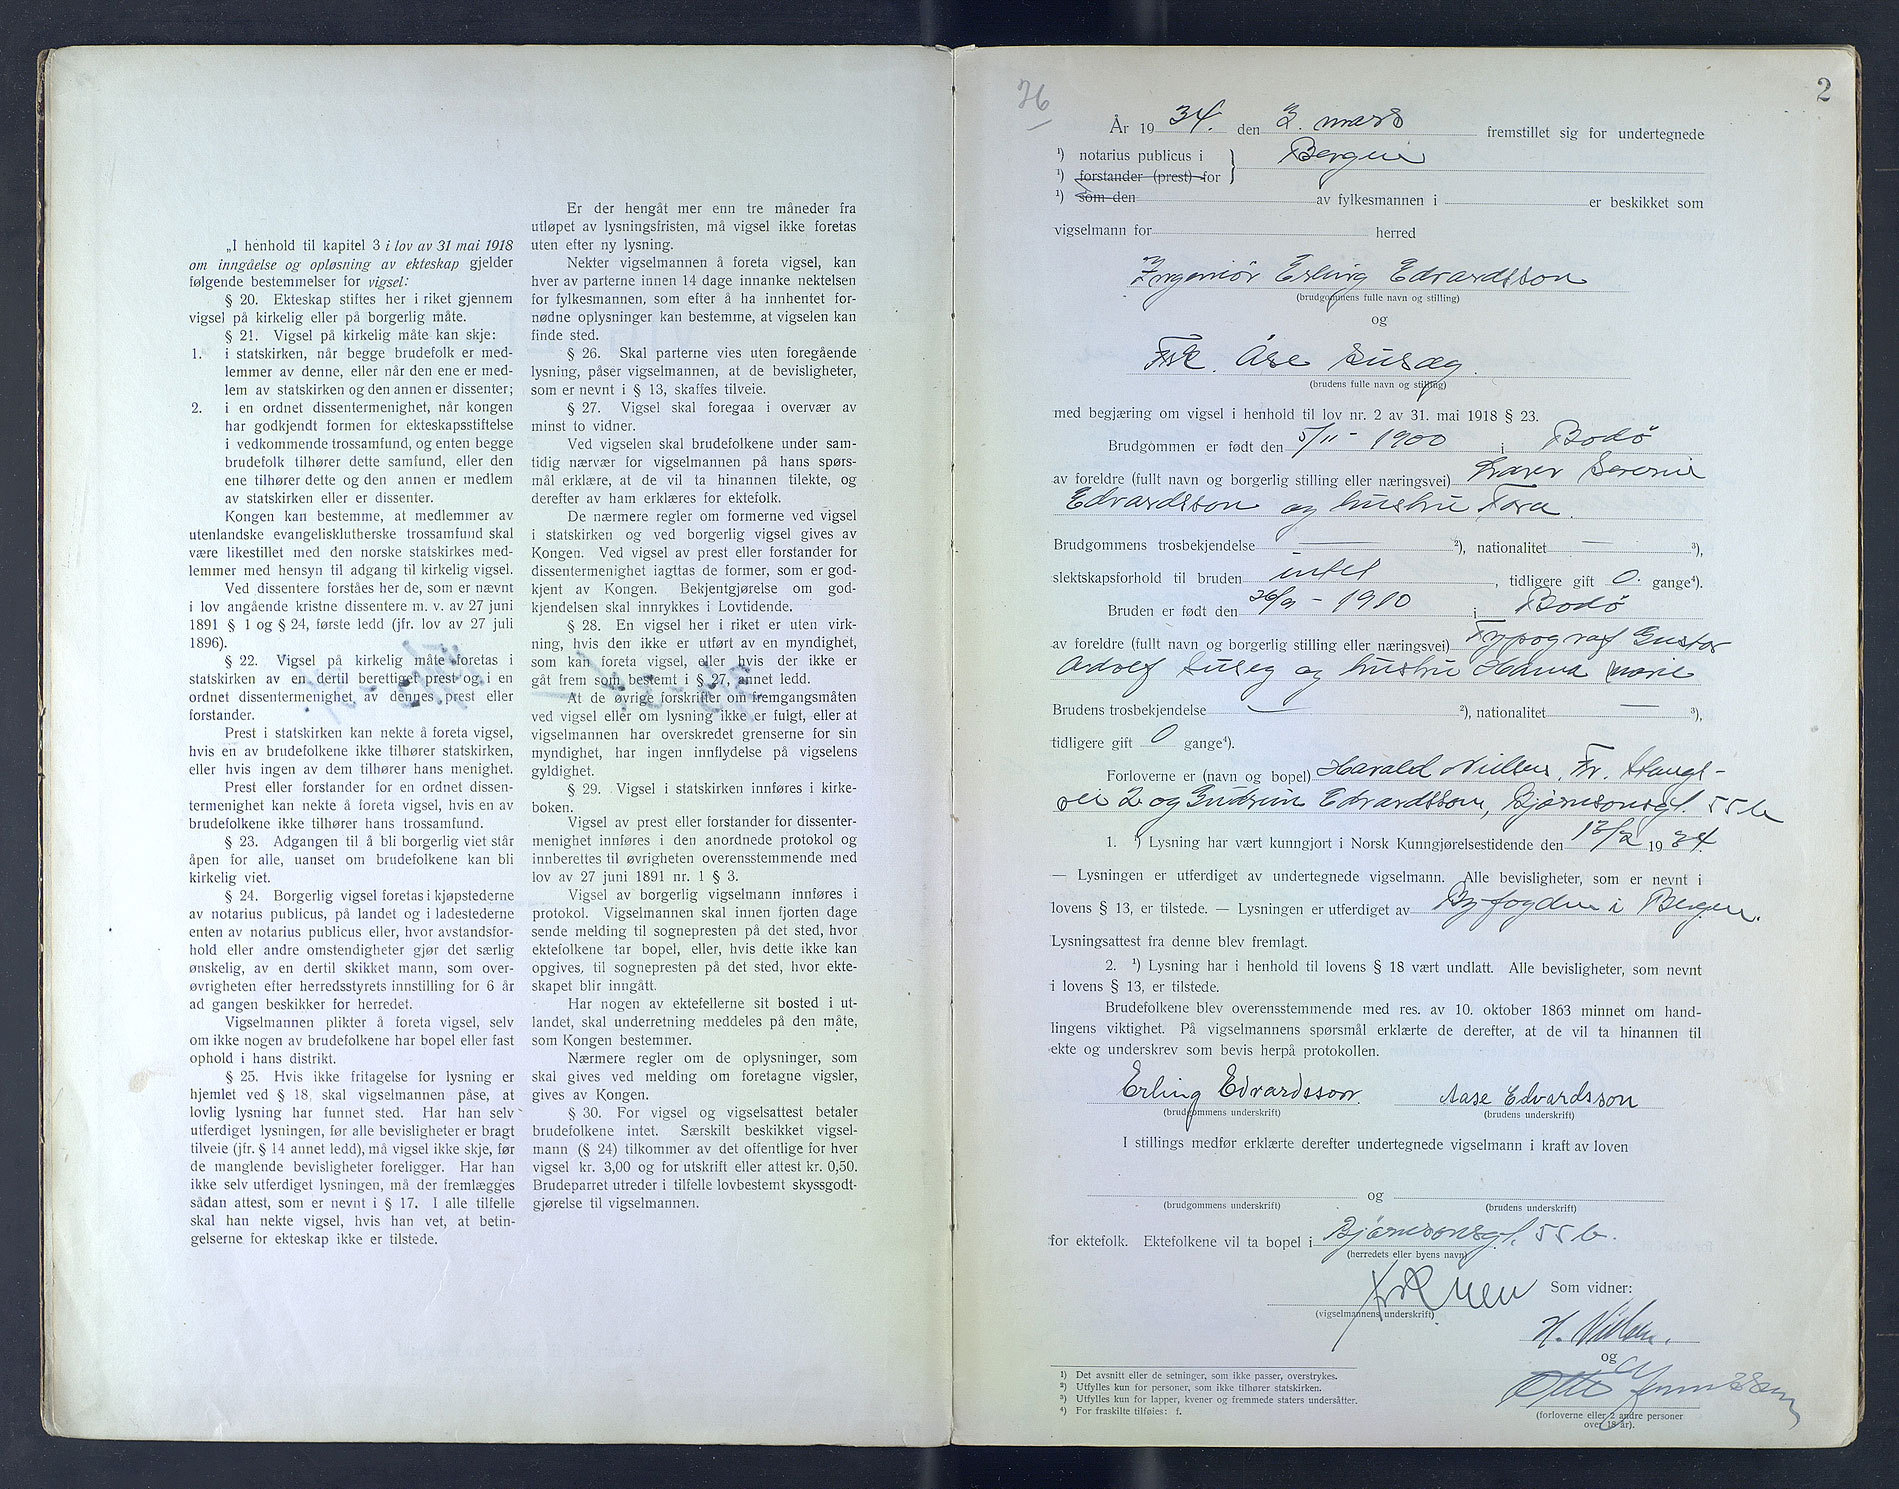 „I henhold til kapitel 3 i lov av 31 mai 1918
om inngåelse og opløsning av ekteskap gjelder
følgende bestemmelser for vigsel:
§ 20. Ekteskap stiftes her i riket gjennem
vigsel på kirkelig eller på borgerlig måte.
§ 21. Vigsel på kirkelig måte kan skje:
1. i statskirken, når begge brudefolk er med-
lemmer av denne, eller når den ene er med-
lem av statskirken og den annen er dissenter;
2. i en ordnet dissentermenighet, når kongen
har godkjendt formen for ekteskapsstiftelse
i vedkommende trossamfund, og enten begge
brudefolk tilhører dette samfund, eller den
ene tilhører dette og den annen er medlem
av statskirken eller er dissenter.
Kongen kan bestemme, at medlemmer av
utenlandske evangelisklutherske trossamfund skal
være likestillet med den norske statskirkes med-
lemmer med hensyn til adgang til kirkelig vigsel.
Ved dissentere forståes her de, som er nævnt
i lov angående kristne dissentere m. v. av 27 juni
1891 § 1 og § 24, første ledd (jfr. lov av 27 juli
1896).
§ 22. Vigsel på kirkelig måte foretas i
statskirken av en dertil berettiget prest og i en
ordnet dissentermenighet av dennes prest eller
forstander.
Prest i statskirken kan nekte å foreta vigsel,
hvis en av brudefolkene ikke tilhører statskirken,
eller hvis ingen av dem tilhører hans menighet.
Prest eller forstander for en ordnet dissen-
termenighet kan nekte å foreta vigsel, hvis en av
brudefolkene ikke tilhører hans trossamfund.
§ 23. Adgangen til å bli borgerlig viet står
åpen for alle, uanset om brudefolkene kan bli
kirkelig viet.
§ 24. Borgerlig vigsel foretas i kjøpstederne
av notarius publicus, på landet og i ladestederne
enten av notarius publicus eller, hvor avstandsfor-
hold eller andre omstendigheter gjør det særlig
ønskelig, av en dertil skikket mann, som over-
øvrigheten efter herredsstyrets innstilling for 6 år
ad gangen beskikker for herredet.
Vigselmannen plikter å foreta vigsel, selv
om ikke nogen av brudefolkene har bopel eller fast
ophold i hans distrikt.
§ 25. Hvis ikke fritagelse for lysning er
hjemlet ved § 18, skal vigselmannen påse, at
lovlig lysning har funnet sted. Har han selv
utferdiget lysningen, før alle bevisligheter er bragt
tilveie (jfr. § 14 annet ledd), må vigsel ikke skje, før
de manglende bevisligheter foreligger. Har han
ikke selv utferdiget lysningen, må der fremlægges
sådan attest, som er nevnt i § 17. I alle tilfelle
skal han nekte vigsel, hvis han vet, at betin-
gelserne for ekteskap ikke er tilstede.
Er der hengåt mer enn tre måneder fra
utløpet av lysningsfristen, må vigsel ikke foretas
uten efter ny lysning.
Nekter vigselmannen å foreta vigsel, kan
hver av parterne innen 14 dage innanke nektelsen
for fylkesmannen, som efter å ha innhentet for-
nødne oplysninger kan bestemme, at vigselen kan
finde sted.
§ 26. Skal parterne vies uten foregående
lysning, påser vigselmannen, at de bevisligheter,
som er nevnt i § 13, skaffes tilveie.
§ 27. Vigsel skal foregaa i overvær av
minst to vidner.
Ved vigselen skal brudefolkene under sam-
tidig nærvær for vigselmannen på hans spørs-
mål erklære, at de vil ta hinannen tilekte, og
derefter av ham erklæres for ektefolk.
De nærmere regler om formerne ved vigsel
i statskirken og ved borgerlig vigsel gives av
Kongen. Ved vigsel av prest eller forstander for
dissentermenighet iagttas de former, som er god-
kjent av Kongen. Bekjentgjørelse om god-
kjendelsen skal innrykkes i Lovtidende.
§ 28. En vigsel her i riket er uten virk-
ning, hvis den ikke er utført av en myndighet,
som kan foreta vigsel, eller hvis der ikke er
gåt frem som bestemt i § 27, annet ledd.
At de øvrige forskrifter om fremgangsmåten
ved vigsel eller om lysning ikke er fulgt, eller at
vigselmannen har overskredet grenserne for sin
myndighet, har ingen innflydelse på vigselens
gyldighet.
§ 29. Vigsel i statskirken innføres i kirke-
boken.
Vigsel av prest eller forstander for dissenter-
menighet innføres i den anordnede protokol og
innberettes til øvrigheten overensstemmende med
lov av 27 juni 1891 nr. 1 § 3.
Vigsel av borgerlig vigselmann innføres i
protokol. Vigselmannen skal innen fjorten dage
sende melding til sognepresten på det sted, hvor
ektefolkene tar bopel, eller, hvis dette ikke kan
opgives, til sognepresten på det sted, hvor ekte-
skapet blir inngått.
Har nogen av ektefellerne sit bosted i ut-
landet, skal underretning meddeles på den måte,
som Kongen bestemmer.
Nærmere regler om de oplysninger, som
skal gives ved melding om foretagne vigsler,
gives av Kongen.
§ 30. For vigsel og vigselsattest betaler
brudefolkene intet. Særskilt beskikket vigsel-
mann (§ 24) tilkommer av det offentlige for hver
vigsel kr. 3,00 og for utskrift eller attest kr. 0,50.
Brudeparret utreder i tilfelle lovbestemt skyssgodt-
gjørelse til vigselmannen.
26
2
År 1934. den 3. mars fremstillet sig for undertegnede
¹) notarius publicus i } Bergen
¹) forstander (prest) for
¹) som den av fylkesmannen i er beskikket som
vigselmann for herred
Ingeniør Erling Edvardsson
(brudgommens fulle navn og stilling)
og
Frk. Åse Susæg.
(brudens fulle navn og stilling)
med begjæring om vigsel i henhold til lov nr. 2 av 31. mai 1918 § 23.
Brudgommen er født den 5/11 - 1900 i Bodø
av foreldre (fullt navn og borgerlig stilling eller næringsvei) Severin
Edvardsson og hustru Tora.
Brudgommens trosbekjendelse — ²), nationalitet — ³),
slektskapsforhold til bruden intet, tidligere gift 0. gange⁴).
Bruden er født den 26/9 - 1910 i Bodø
av foreldre (fullt navn og borgerlig stilling eller næringsvei) Typograf Gustav
Adolf Suseg og hustru Hanna Marie
Brudens trosbekjendelse — ²), nationalitet — ³),
tidligere gift 0 gange⁴).
Forloverne er (navn og bopel) Harald Nielsen, Fr. Haugs-
vei 2 og Gudrun Edvardsson, Bjørnsonsgt. 55 b
1. ¹) Lysning har vært kunngjort i Norsk Kunngjørelsestidende den 13/2 1934.
— Lysningen er utferdiget av undertegnede vigselmann. Alle bevisligheter, som er nevnt i
lovens § 13, er tilstede. — Lysningen er utferdiget av Byfogden i Bergen.
Lysningsattest fra denne blev fremlagt.
2. ¹) Lysning har i henhold til lovens § 18 vært undlatt. Alle bevisligheter, som nevnt
i lovens § 13, er tilstede.
Brudefolkene blev overensstemmende med res. av 10. oktober 1863 minnet om hand-
lingens viktighet. På vigselmannens spørsmål erklærte de derefter, at de vil ta hinannen til
ekte og underskrev som bevis herpå protokollen.
Erling Edvardsson. Aase Edvardsson
(brudgommens underskrift) (brudens underskrift)
I stillings medfør erklærte derefter undertegnede vigselmann i kraft av loven
og
(brudgommens underskrift) (brudens underskrift)
for ektefolk. Ektefolkene vil ta bopel i Bjørnsonsgt. 55 b.
(herredets eller byens navn)
Som vidner:
(vigselmannens underskrift)
H. Nielsen.
og
Otto
(forloverne eller 2 andre personer
over 18 år).
¹) Det avsnitt eller de setninger, som ikke passer, overstrykes.
²) Utfylles kun for personer, som ikke tilhører statskirken.
³) Utfylles kun for lapper, kvener og fremmede staters undersåtter.
⁴) For fraskilte tilføies: f.